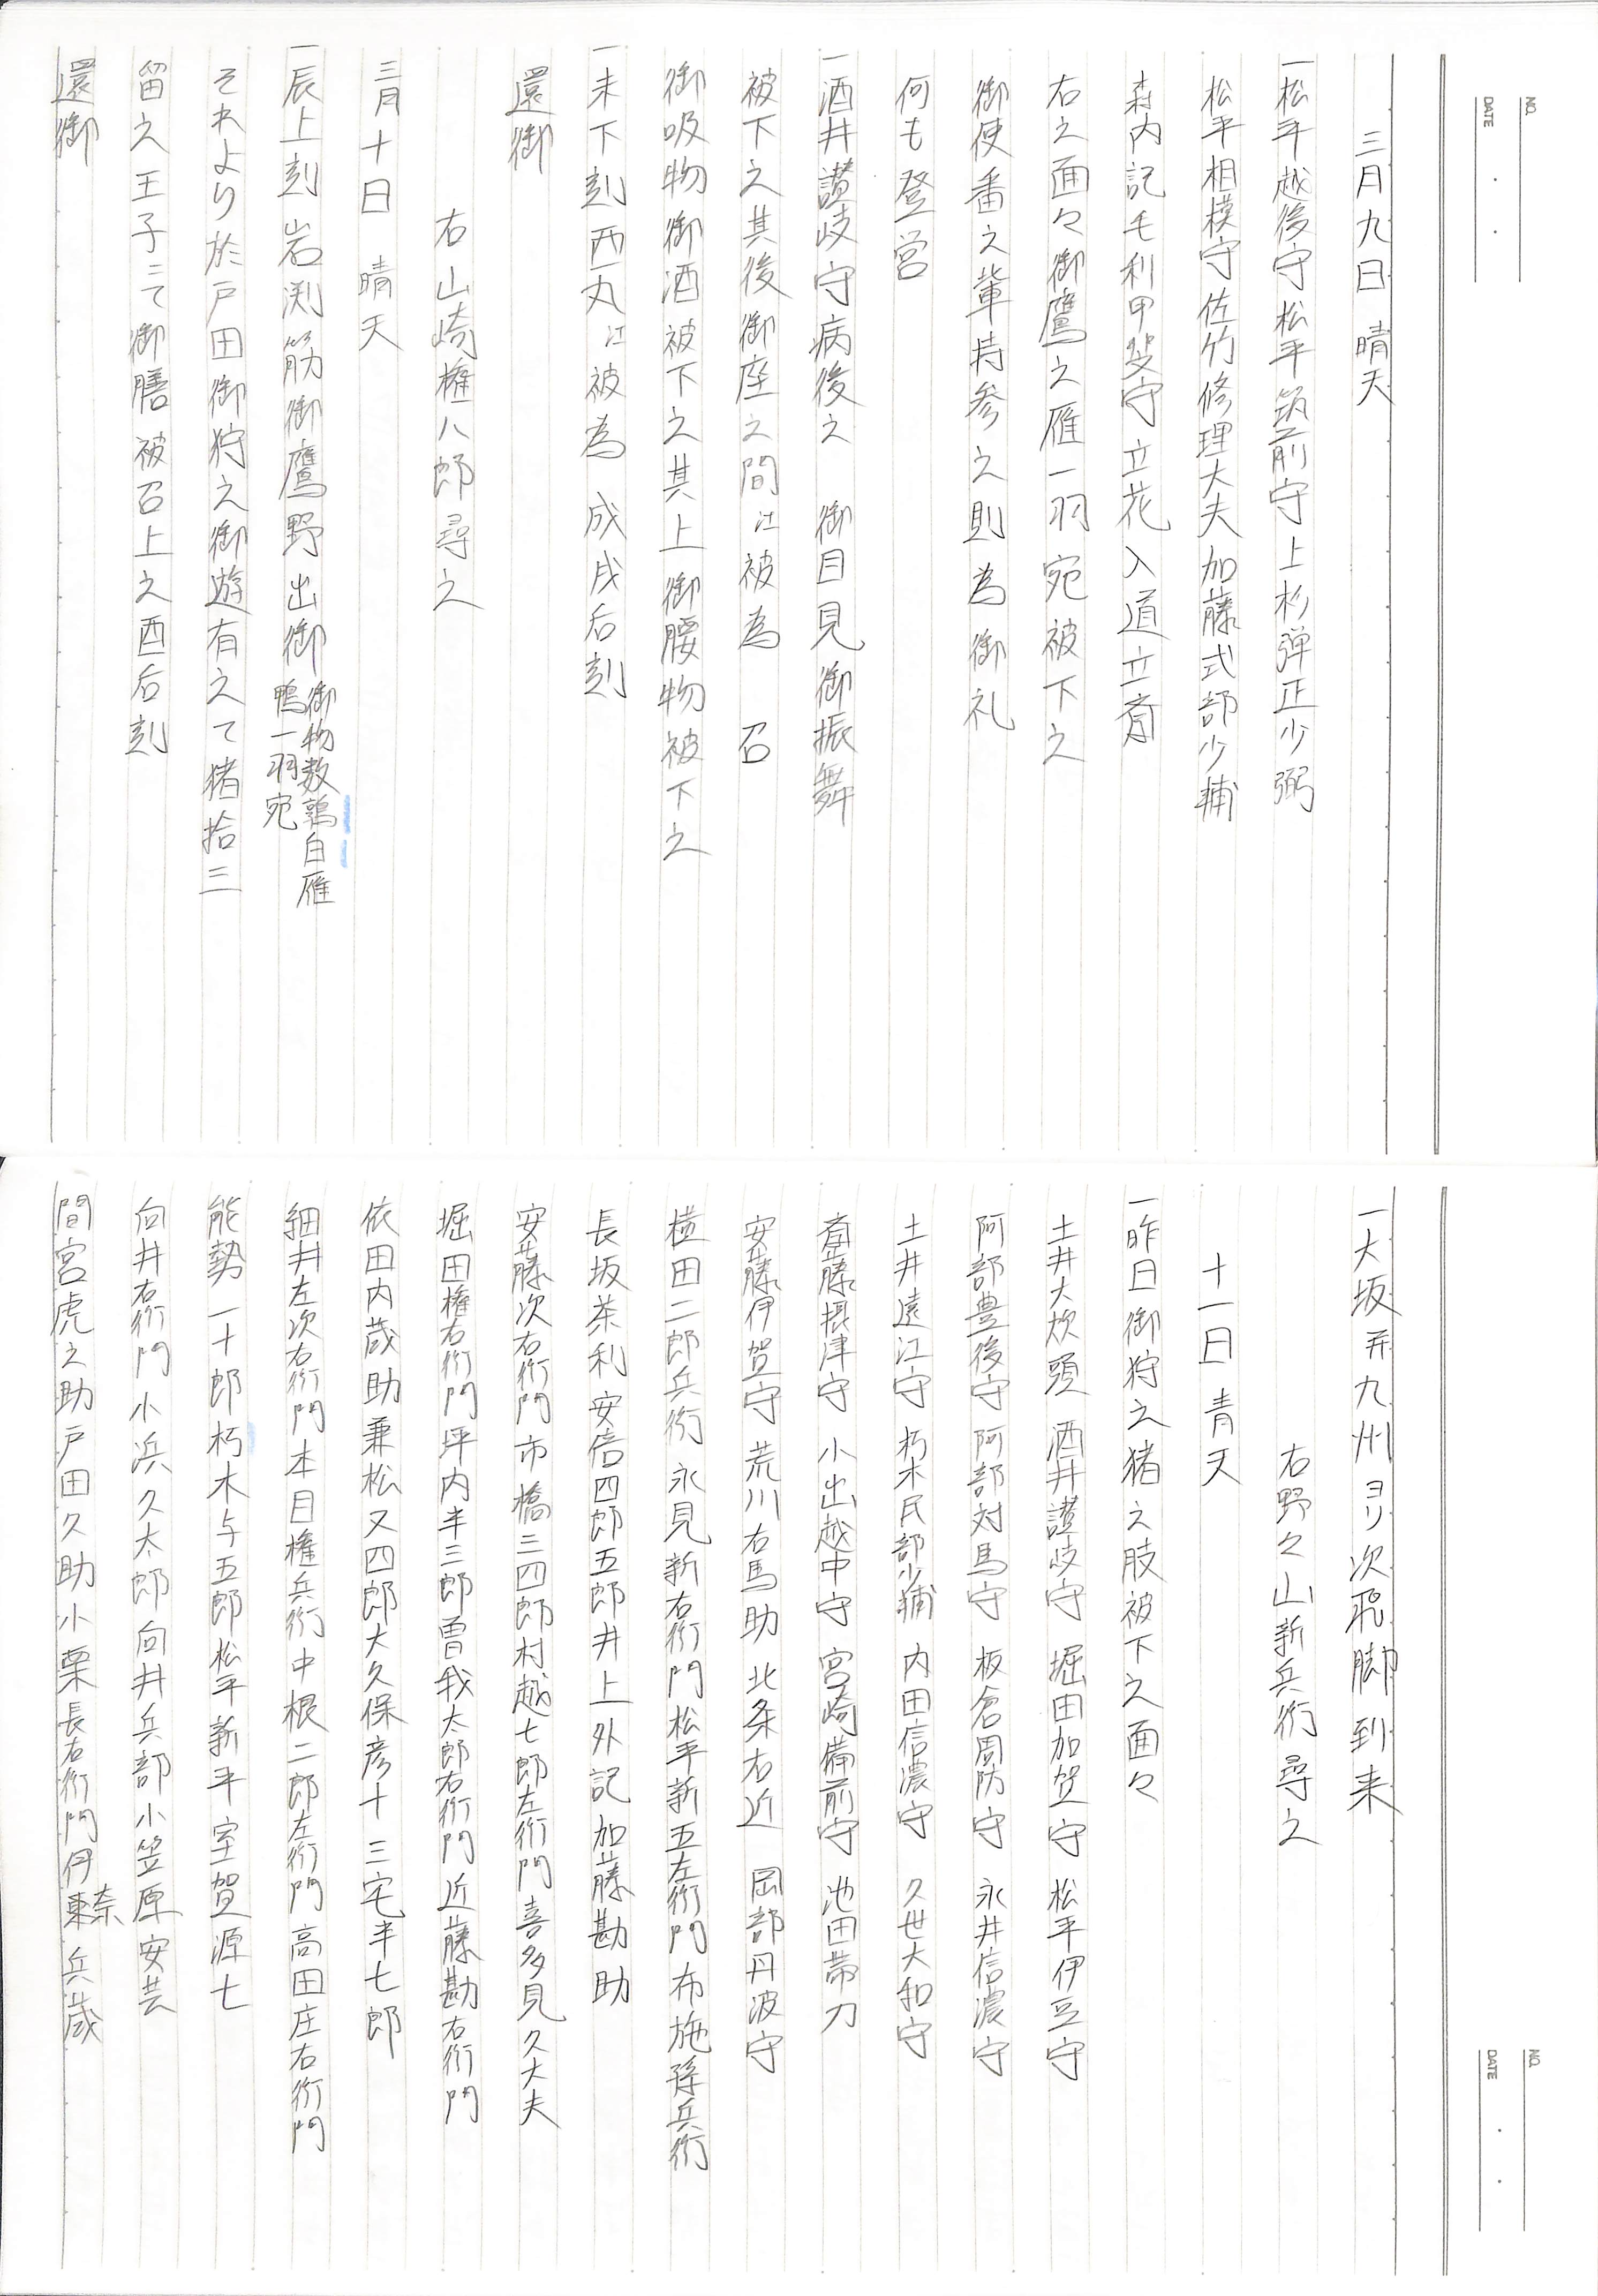 NO.
DATE
三月九日 晴天
一松平越後守 松平筑前守 上杉弾正少弼
松平相模守 佐竹修理大夫 加藤式部少輔
森内記 毛利甲斐守 立花入道立斎
右之面々御鷹之雁一羽宛被下之
御使番之輩持参之則為御礼
何も登営
一酒井讃岐守病後之 御目見御振舞
被下之其後御座之間江被為 召
御吸物御酒被下之其上御腰物被下之
一未下刻西丸江被為 成戌后刻
還御
右山崎権八郎尋之
三月十日 晴天
一辰上刻岩渕筋御鷹野出御 御物数鶉白雁
鴨一羽宛
それより於戸田御狩之御遊有之て猪拾三
留之王子ニて御膳被召上之酉后刻
還御
NO.
DATE
一大坂并九州ヨリ次飛脚到来
右野々山新兵衛尋之
十一日 青天
一昨日御狩之猪之肢被下之面々
土井大炊頭 酒井讃岐守 堀田加賀守 松平伊豆守
阿部豊後守 阿部対馬守 板倉周防守 永井信濃守
土井遠江守 朽木民部少輔 内田信濃守 久世大和守
斎藤摂津守 小出越中守 宮崎備前守 池田帯刀
安藤伊賀守 荒川右馬助 北条右近 岡部丹波守
横田二郎兵衛 永見新右衛門 松平新五左衛門 布施孫兵衛
長坂茶利 安倍四郎五郎 井上外記 加藤勘助
安藤次右衛門 市橋三四郎 村越七郎左衛門 喜多見久大夫
堀田権右衛門 坪内半三郎 曽我太郎右衛門 近藤勘右衛門
依田内蔵助 兼松又四郎 大久保彦十 三宅半七郎
細井左次右衛門 本目権兵衛 中根二郎左衛門 高田庄右衛門
能勢一十郎 朽木与五郎 松平新平 室賀源七
向井右衛門 小浜久太郎 向井兵部 小笠原安芸
間宮虎之助 戸田久助 小栗長右衛門 伊奈東兵蔵